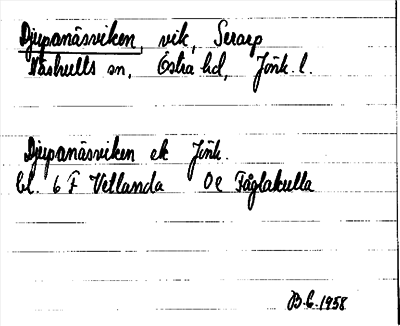 Djupanäsviken, vik, Serarp
Näshults sn, Östra hd, Jönk. l.
Djupanäsviken ek Jönk.
bl. 6 F Vetlanda 0e Fåglakulla
B.E. 1958